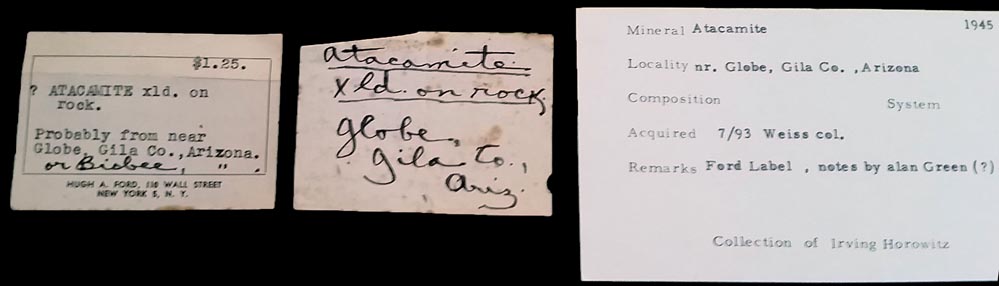 $1.25.
? ATACAMITE xld. on
rock.
Probably from near
Globe, Gila Co., Arizona.
or Bisbee, " .
HUGH A. FORD, 110 WALL STREET
NEW YORK 5, N. Y.
atacamite
xld. on rock,
Globe,
Gila Co.,
Ariz.
Mineral Atacamite 1945
Locality nr. Globe, Gila Co. ,Arizona
Composition System
Acquired 7/93 Weiss col.
Remarks Ford Label , notes by alan Green (?)
Collection of Irving Horowitz